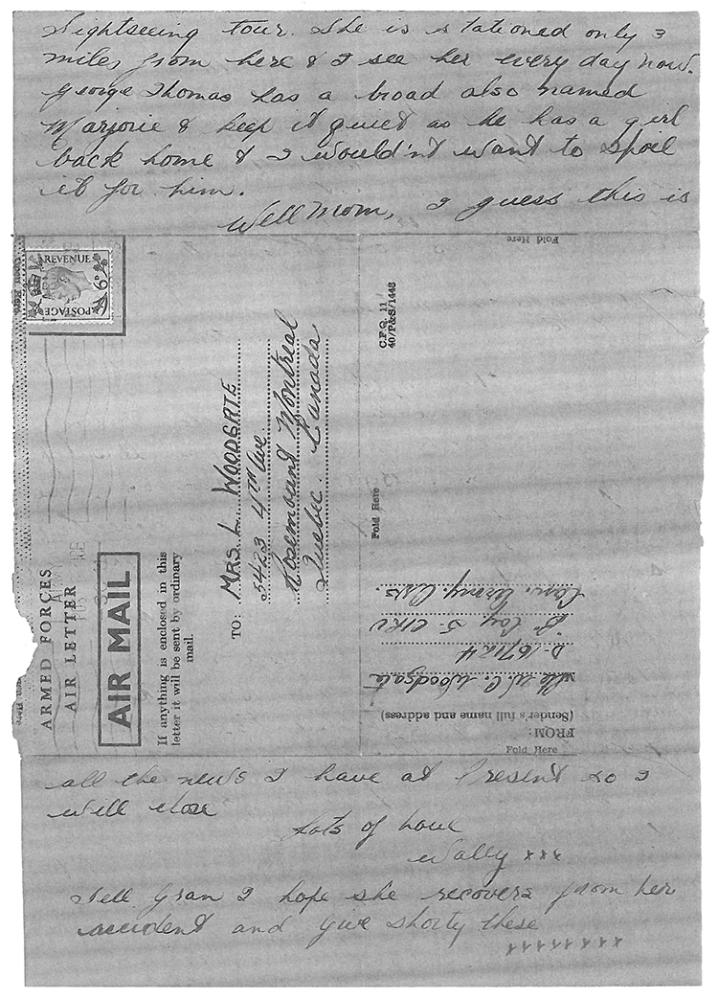 Sightseeing tour. She is stationed only 3
miles from here & I see her every day now.
George Thomas has a broad also named
Marjorie & keep it quiet as he has a girl
back home & I wouldn't want to spoil
it for him.
Well Mom, I guess this is
REVENUE
POSTAGE
ARMED FORCES
AIR LETTER
AIR MAIL
If anything is enclosed in this
letter it will be sent by ordinary
mail.
TO: MRS. L. WOODGATE
5423 4TH Ave.
Rosemount Montreal
Quebec. Canada
Fold Here
40/P&S/1443
Fold Here
Fold Here
FROM:
(Sender's full name and address)
Pte W.C. Woodgate
D-167124
"B" Coy 5. CIRU
Can. Army. O/S.
all the news I have at Present so I
will close
Lots of love
Wally xxx
Tell Gran I hope she recovers from her
accident and give Shorty these
xxxxxxxx